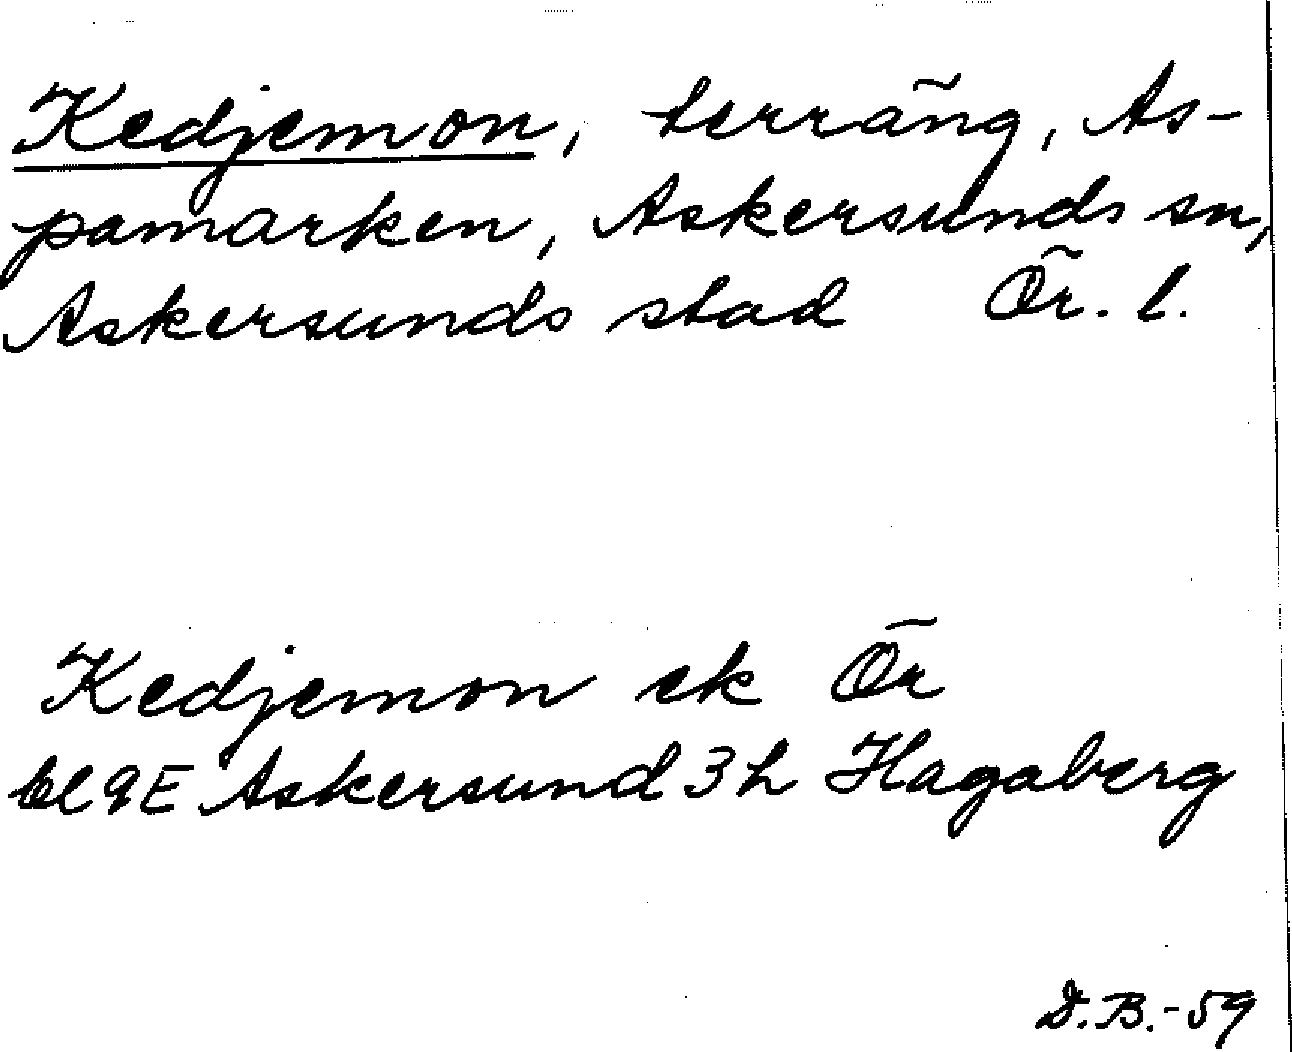 Kedjemon, terräng, As-
pamarken, Askersunds sn,
Askersunds stad Ör. l.
Kedjemon ek Ör
bl 9E Askersund 3h Hagaberg
D.B.-59